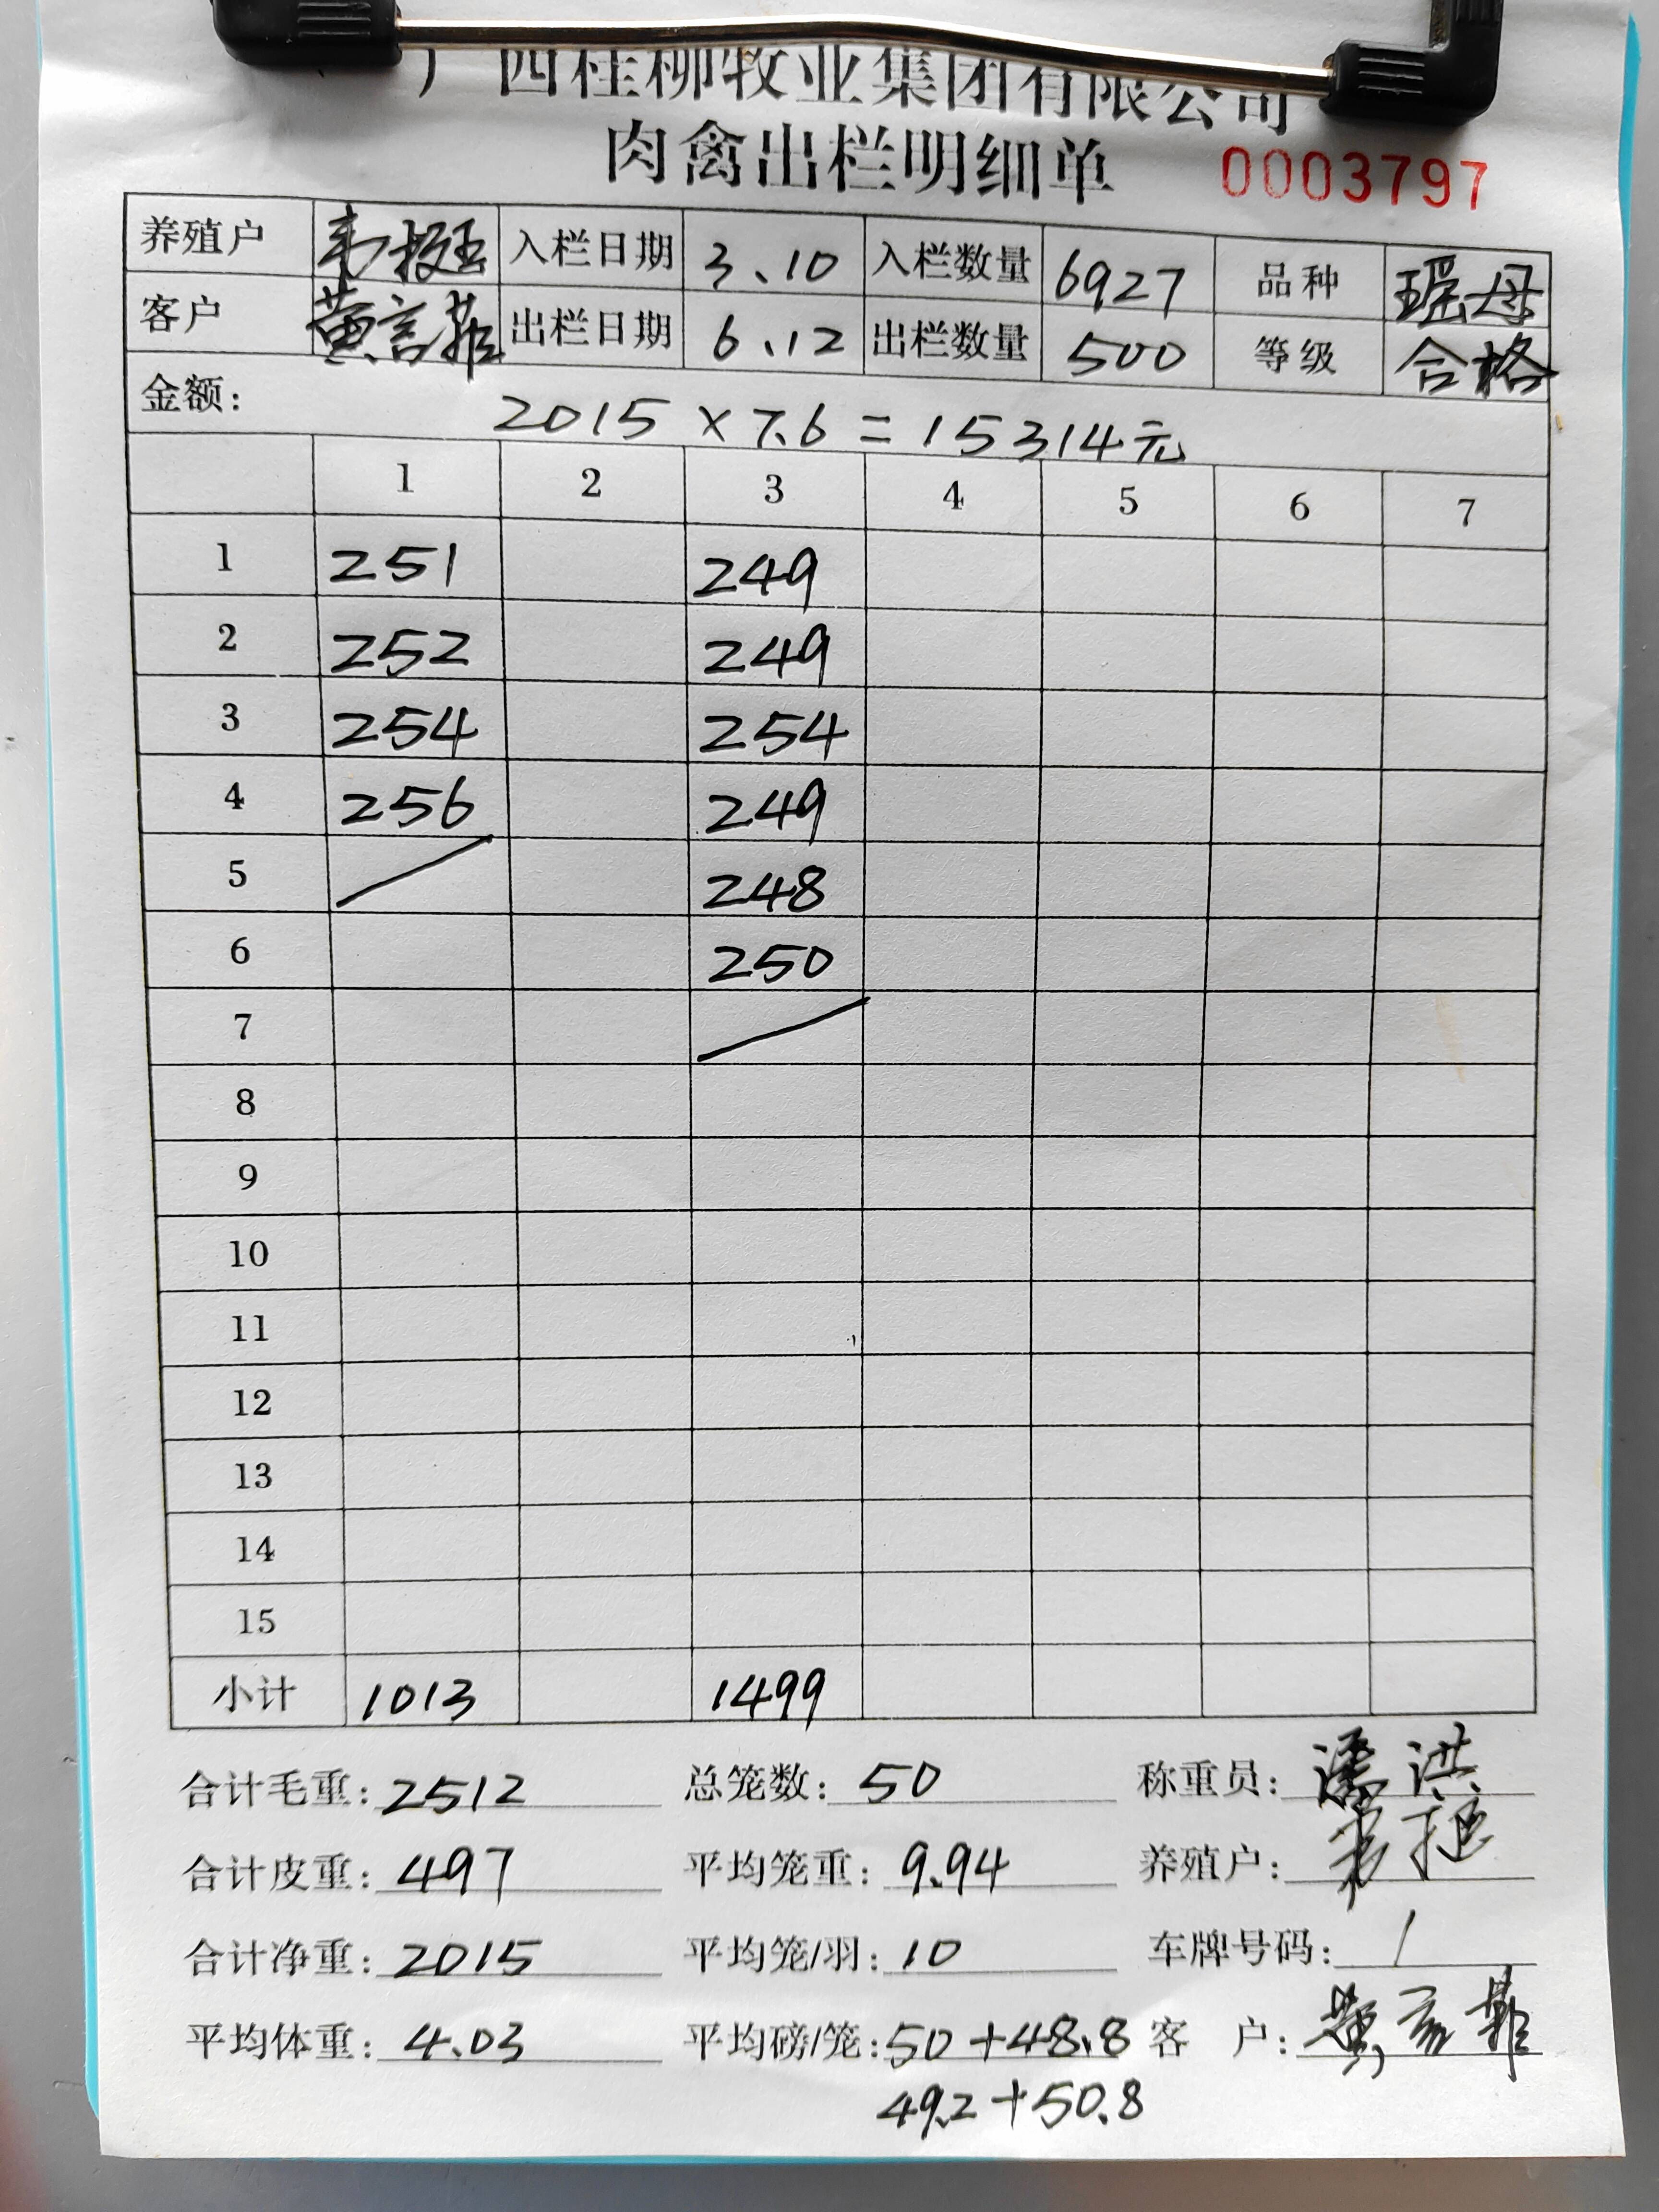 广西桂柳牧业集团有限公司
肉禽出栏明细单 0003797
养殖户 韦挺 入栏日期 3.10 入栏数量 6927 品种 瑶母
客户 出栏日期 6.12 出栏数量 500 等级 合格
金额: 2015×7.6=15314元
1 2 3 4 5 6 7
1 251 249
2 252 249
3 254 254
4 256 249
5 248
6 250
7
8
9
10
11
12
13
14
15
小计 1013 1499
合计毛重: 2512 总笼数: 50 称重员: 潘洪
合计皮重: 497 平均笼重: 9.94 养殖户: 韦挺
合计净重: 2015 平均笼/羽: 10 车牌号码: /
平均体重: 4.03 平均磅/笼: 50+48.8 客 户:
49.2+50.8